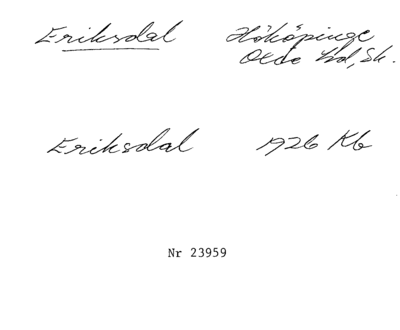 Eriksdal Hököpinge
Oxie hd, Sk.
Eriksdal 1926 Kb
Nr 23959